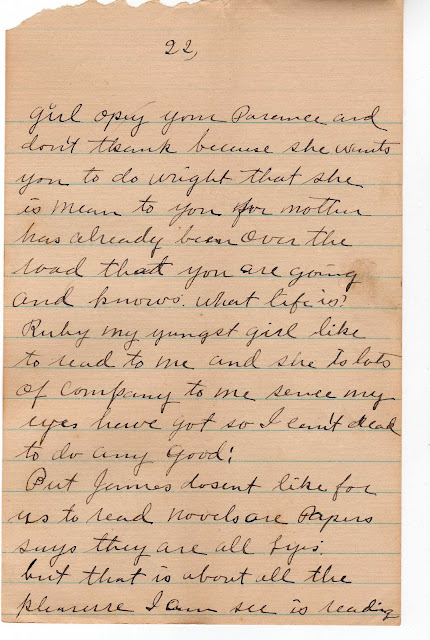 22,
girl opey your Parence and
don't thank because she wants
you to do wright that she
is mean to you for mother
has already been over the
road that you are going
and knows. what life is?
Ruby my yungst girl like
to read to me and she is lots
of company to me sence my
eyes have got so I can't read
to do any good!
But James dosent like for
us to read novels are Papers
says they are all lyes.
but that is about all the
pleasurre I am see is reading